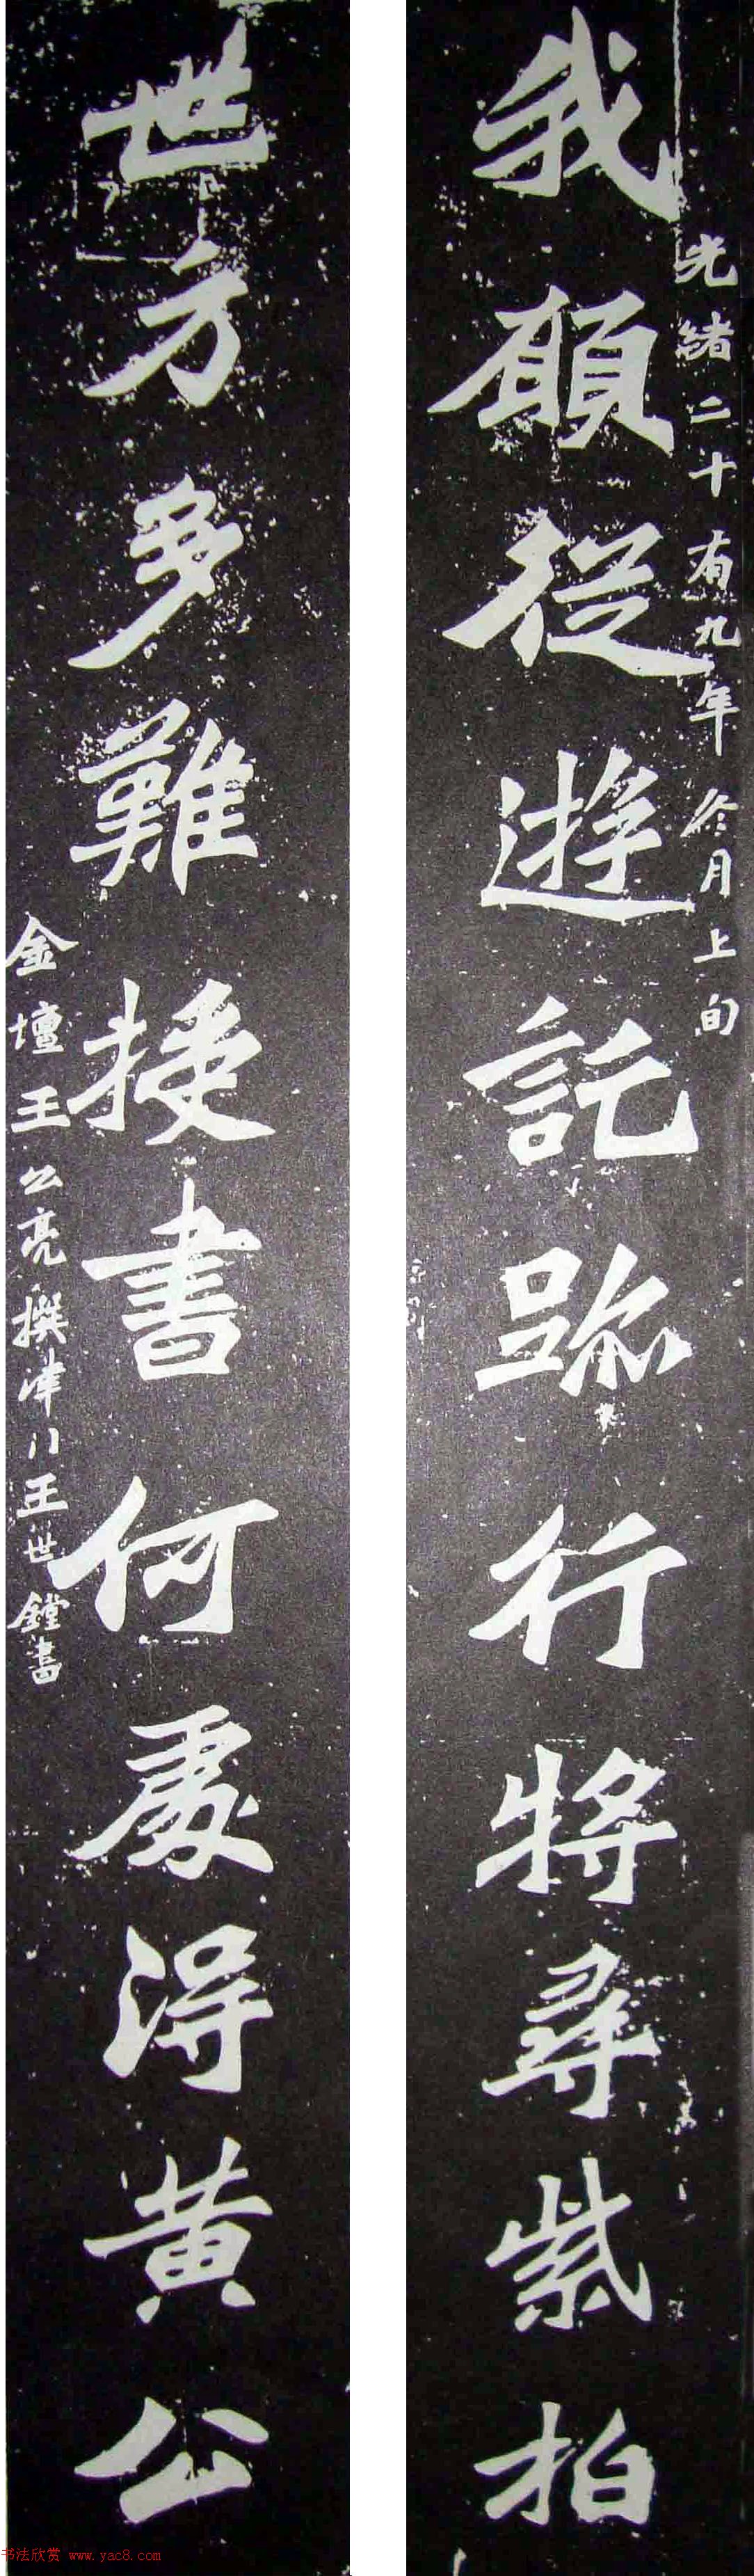 光緒二十有九年冬月上旬
我願從遊託跡行將尋紫柏
世方多難授書何處得黄公
金壇王公亮撰津门王世鏜書
书法欣赏 www.yac8.com